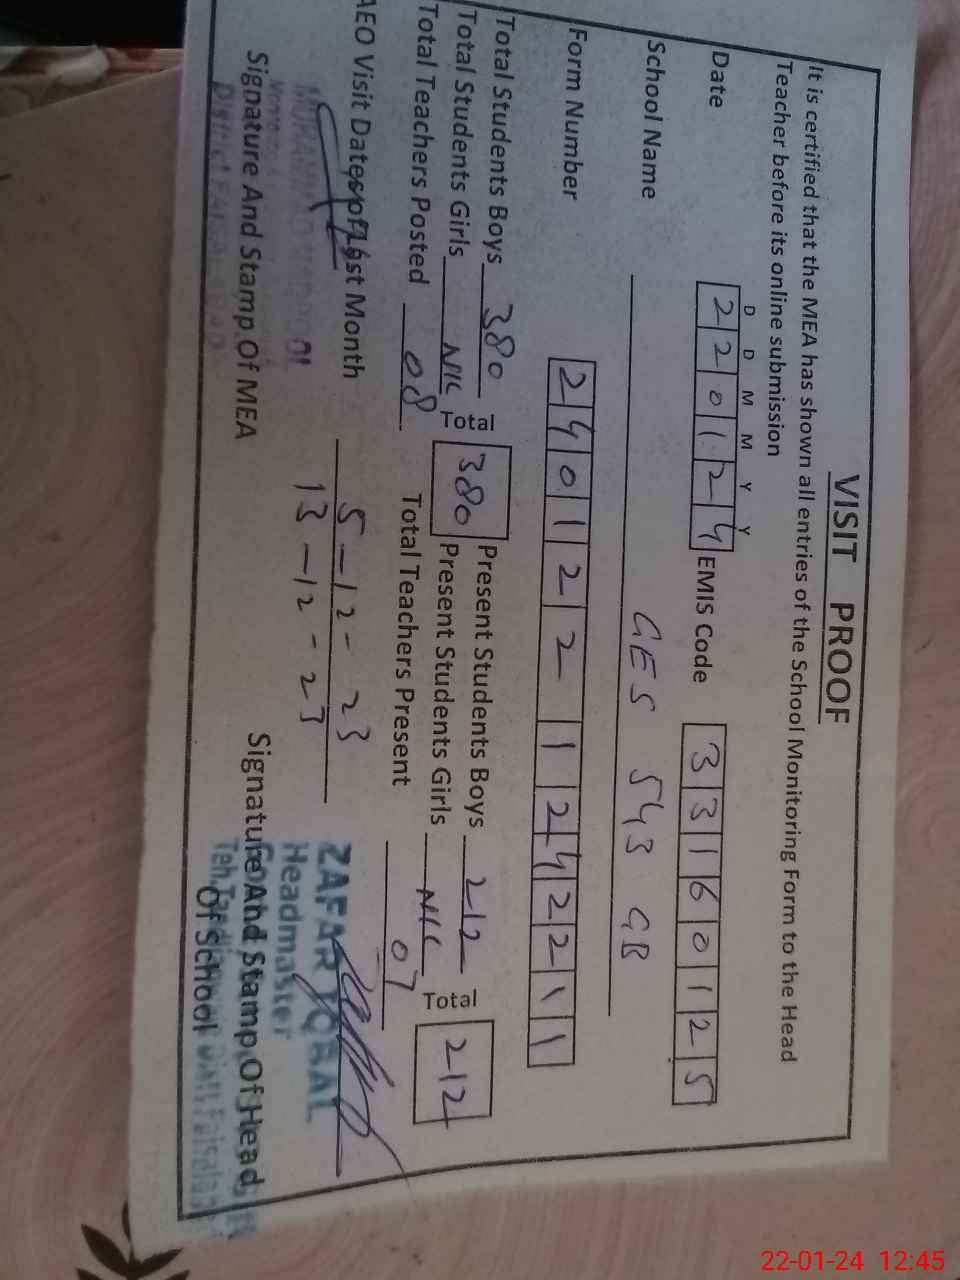 VISIT PROOF
It is certified that the MEA has shown all entries of the School Monitoring Form to the Head
Teacher before its online submission
D D M M Y Y
Date 220124 EMIS Code 33160125
School Name GES 543 GB
Form Number 2401221242211
Total Students Boys 380 Present Students Boys 212
Total Students Girls NIL Total 380 Present Students Girls NIL Total 212
Total Teachers Posted 08 Total Teachers Present 07
AEO Visit Dates of last Month 5-12-23
13-12-23
ZAFAR IQBAL
Headmaster
Signature And Stamp Of MEA Signature And Stamp Of Head
Of School
22-01-24 12:45